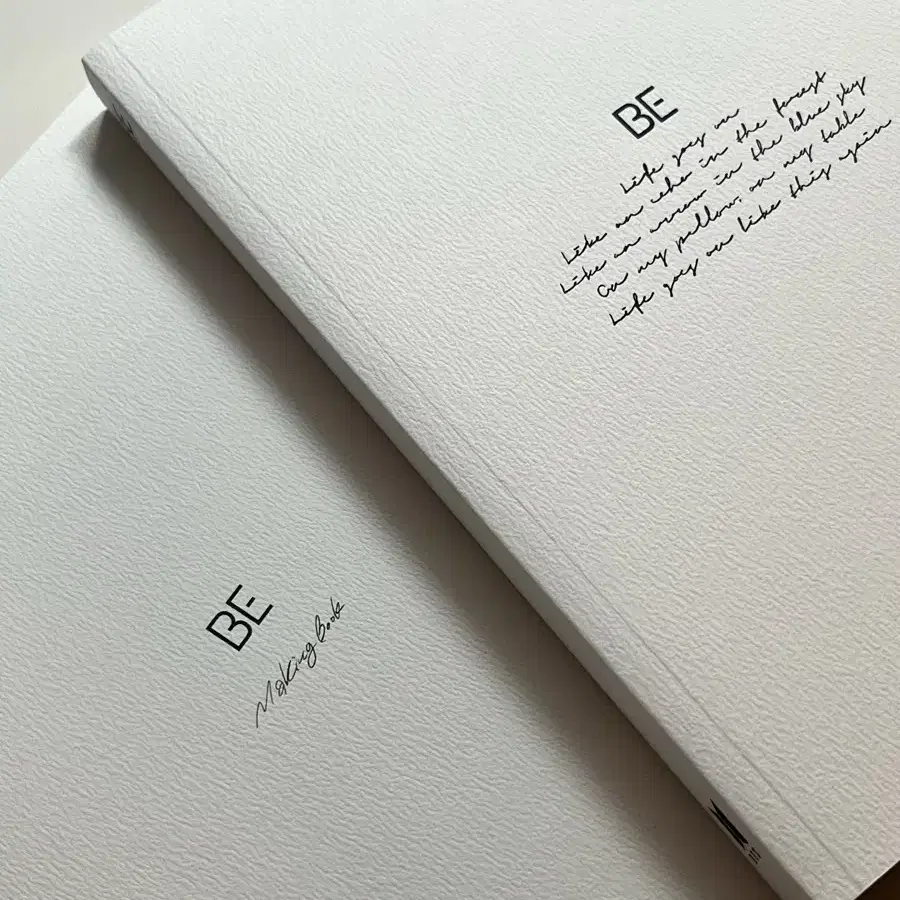 BE
Life goes on
Like an echo in the forest
Like an arrow in the blue sky
On my pillow, on my table
Life goes on like this again
BE
Making Book